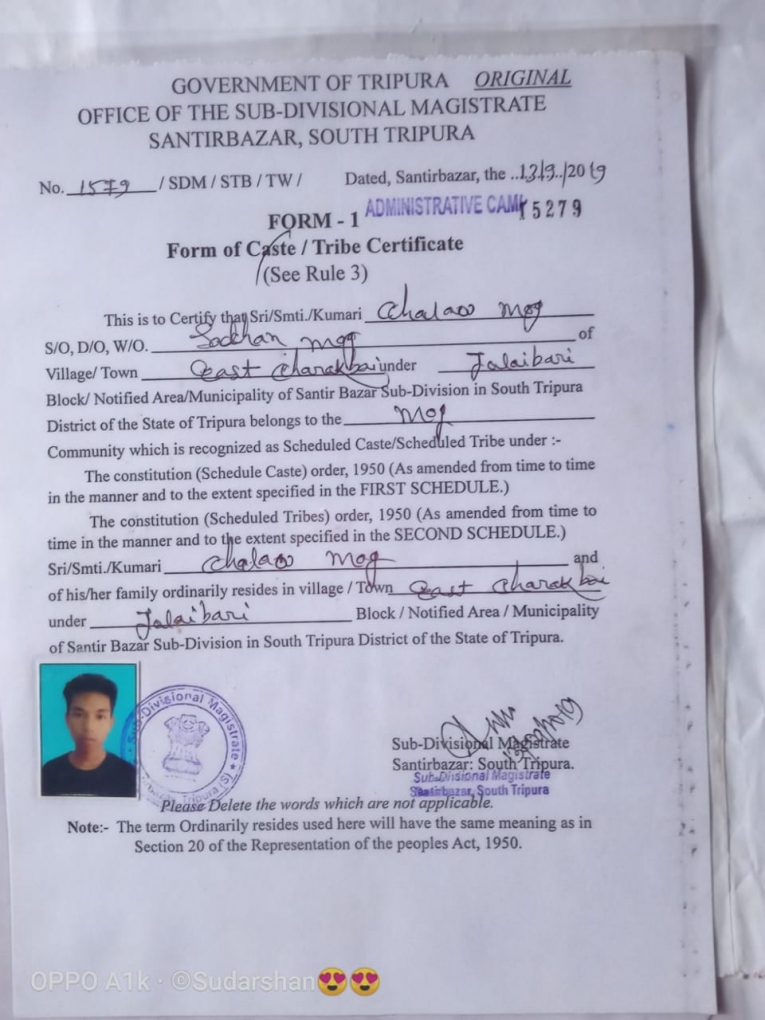 GOVERNMENT OF TRIPURA ORIGINAL
OFFICE OF THE SUB-DIVISIONAL MAGISTRATE
SANTIRBAZAR, SOUTH TRIPURA
No. 1579 / SDM / STB / TW / Dated, Santirbazar, the ..13/9../2019
ADMINISTRATIVE CAMP 15279
FORM - 1
Form of Caste / Tribe Certificate
(See Rule 3)
This is to Certify that Sri/Smti./Kumari Chalao Mog
S/O, D/O, W/O. Sadhan Mog of
Village/ Town East Charakbai under Jolaibari
Block/ Notified Area/Municipality of Santir Bazar Sub-Division in South Tripura
District of the State of Tripura belongs to the Mog
Community which is recognized as Scheduled Caste/Scheduled Tribe under :-
The constitution (Schedule Caste) order, 1950 (As amended from time to time
in the manner and to the extent specified in the FIRST SCHEDULE.)
The constitution (Scheduled Tribes) order, 1950 (As amended from time to
time in the manner and to the extent specified in the SECOND SCHEDULE.)
Sri/Smti./Kumari Chalao Mog and
of his/her family ordinarily resides in village / Town East Charakbai
under Jolaibari Block / Notified Area / Municipality
of Santir Bazar Sub-Division in South Tripura District of the State of Tripura.
Sub-Divisional Magistrate
Sub-Divisional Magistrate
Santirbazar: South Tripura.
Sub-Divisional Magistrate
Santirbazar, South Tripura
Tripura (S)
Please Delete the words which are not applicable.
Note:- The term Ordinarily resides used here will have the same meaning as in
Section 20 of the Representation of the peoples Act, 1950.
OPPO A1k · ©Sudarshan😍😍